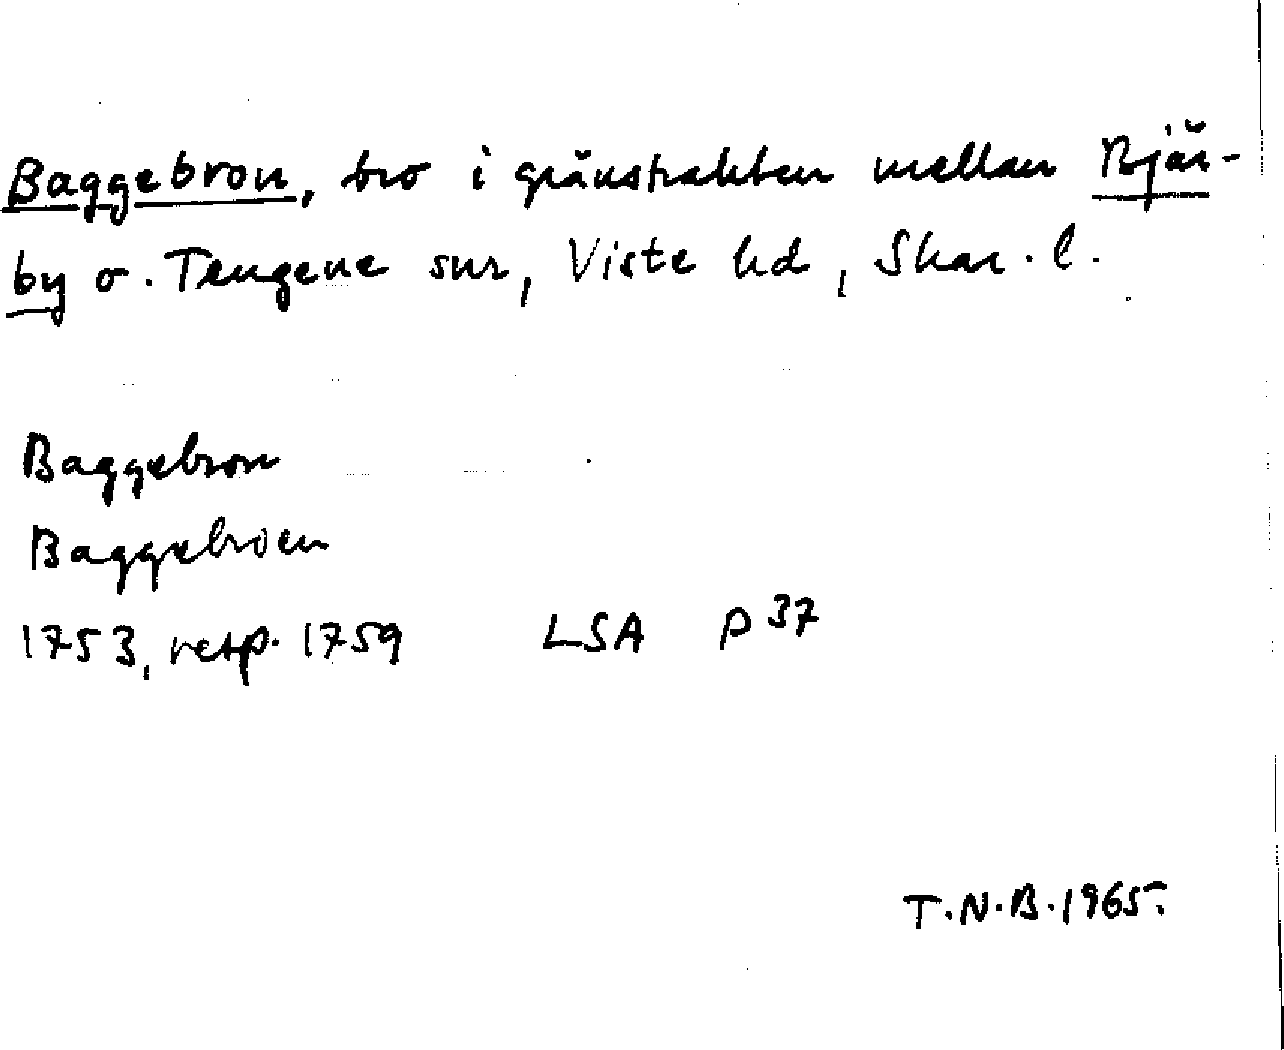 Baggebron, bro i gränstrakten mellan Bjär-
by o. Tengene snr, Viste hd, Skar. l.
Baggebron
Baggebroen
1753, resp. 1759 LSA P 37
T.N.B. 1965.